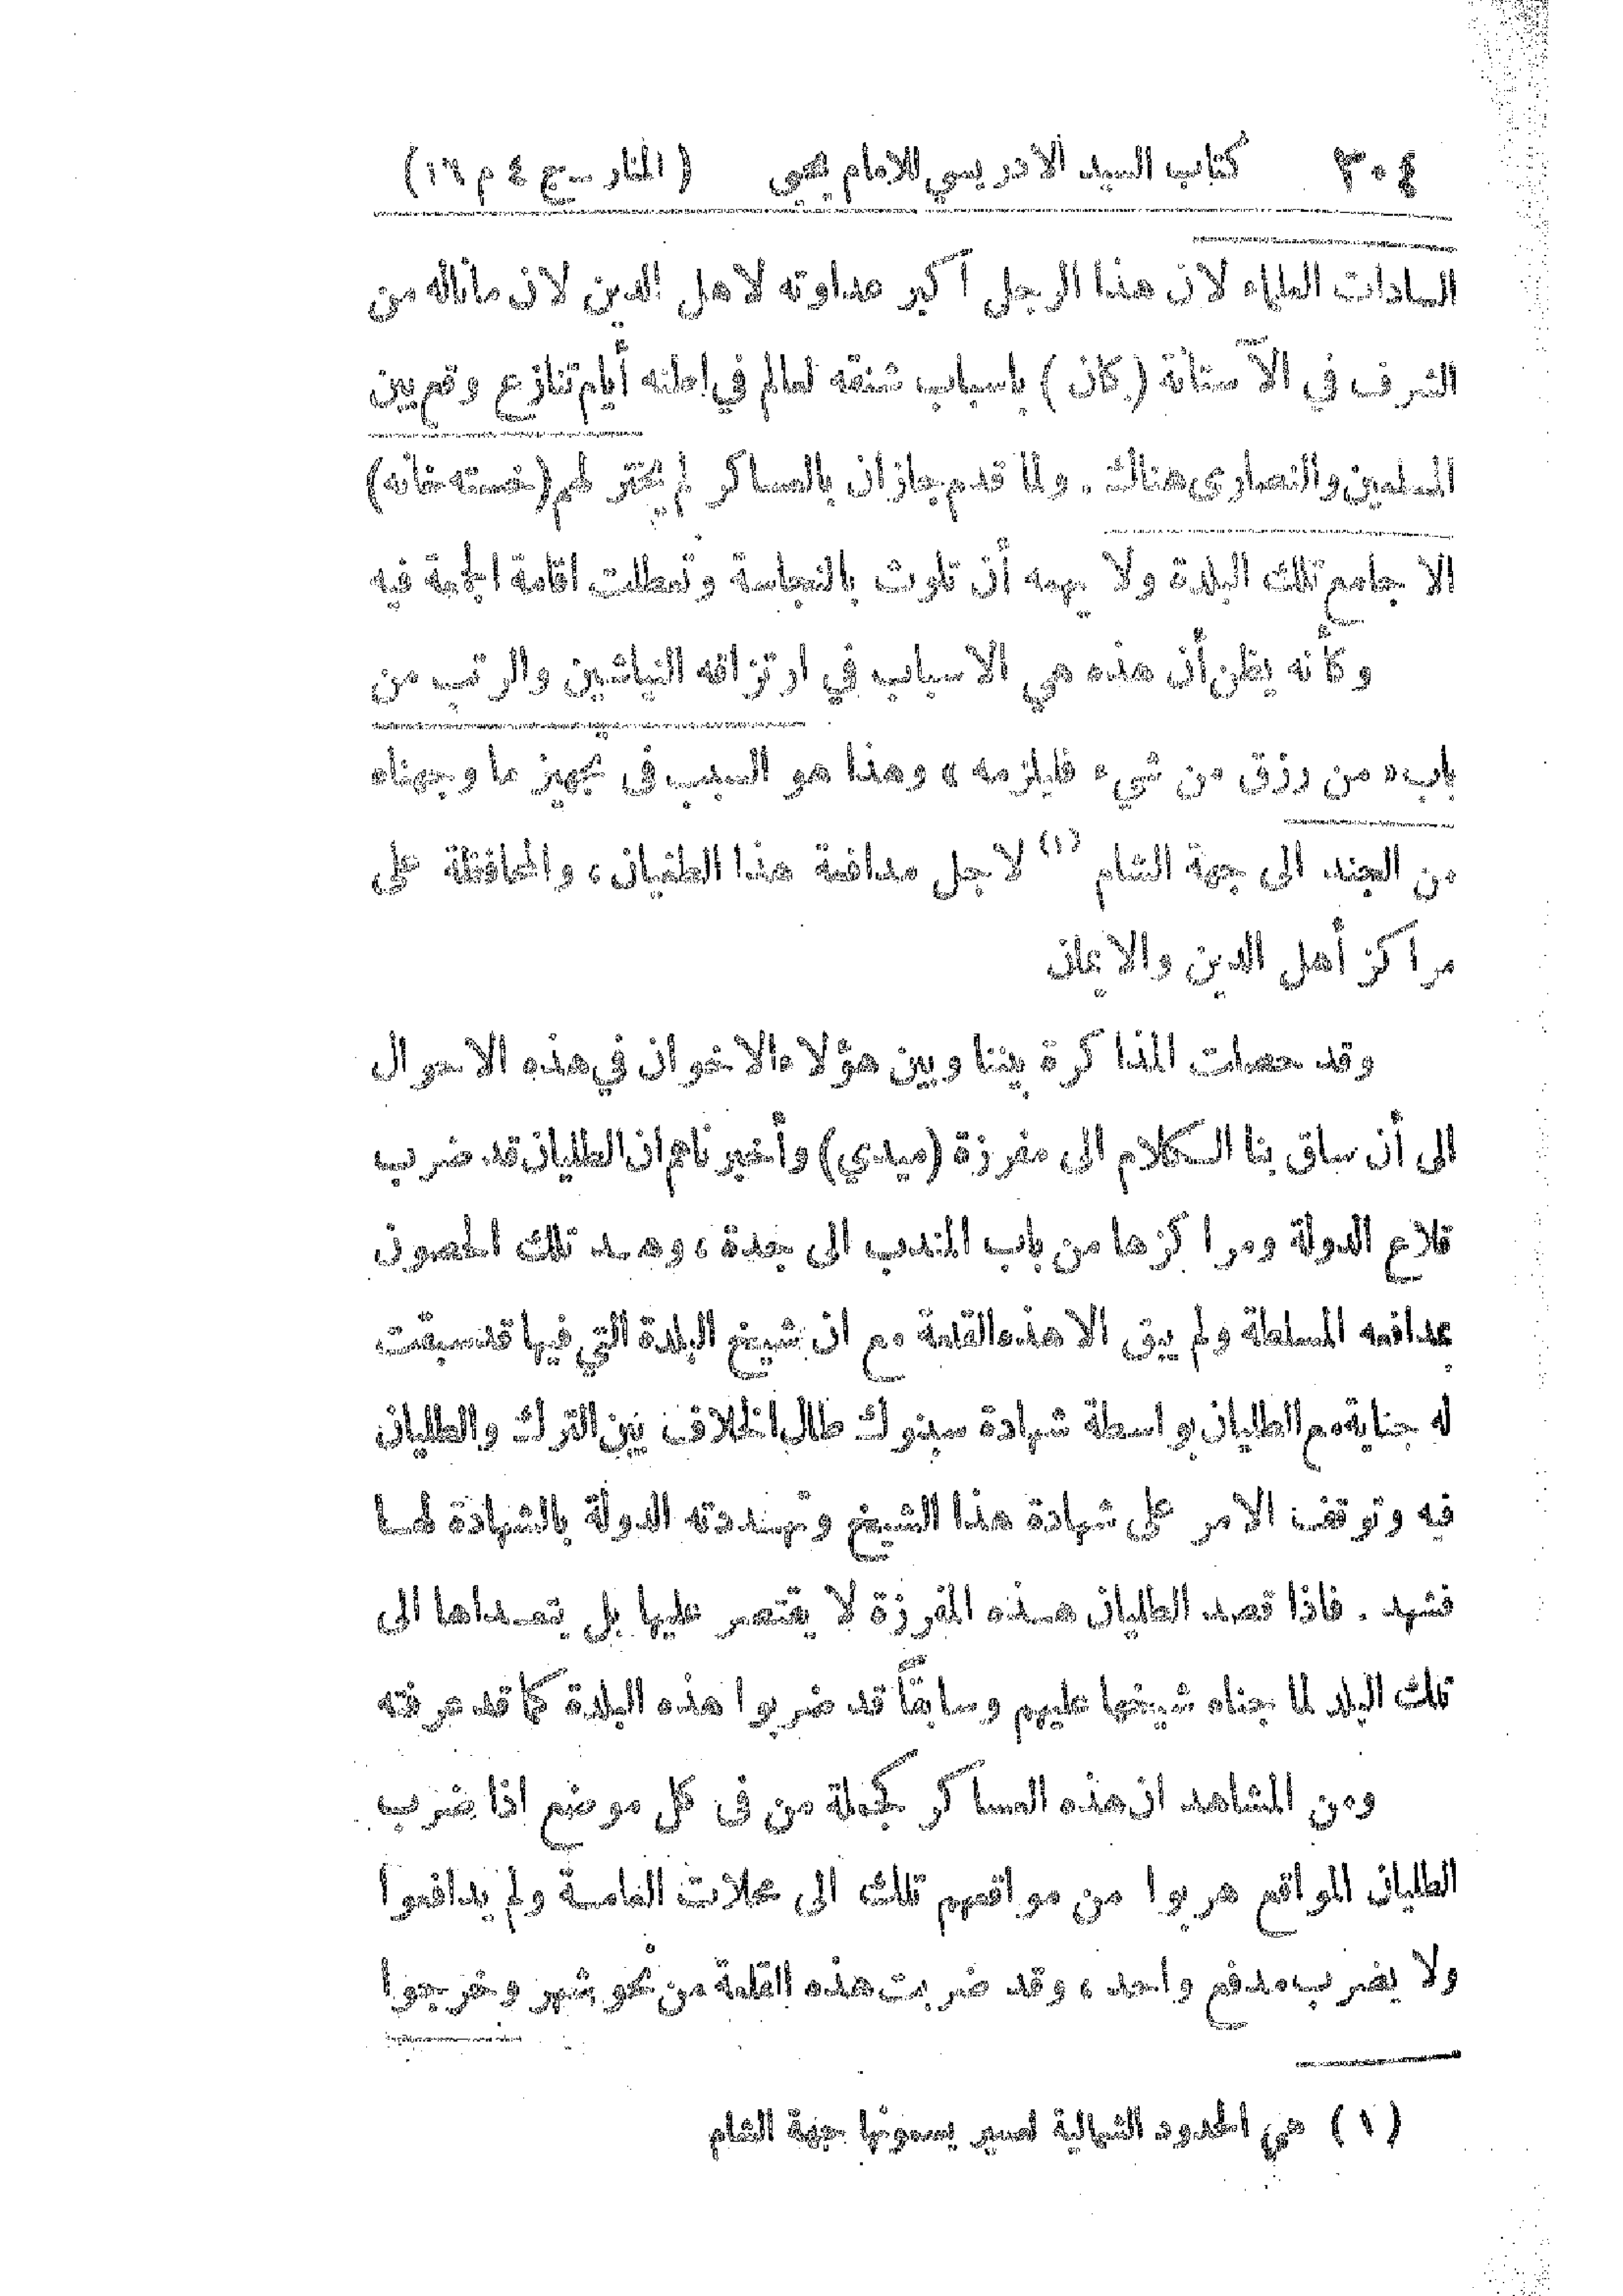 ٣٠٤ كتاب السيد الادريسي للامام يحيى (المنار ـ ج ٤ م ١٦)
السادات العلماء لان هذا الرجل أكبر عداوته لاهل الدين لان ماناله من
الشرف في الآستانة (كان) باسباب شنقه لعالم في اطنه أيام تنازع وقع بين
المسلمين والنصارى هناك . ولما قدم جازان بالعساكر لم يختر لهم (خسته خانه)
الا جامع تلك البلدة ولا يهمه أن تلوث بالنجاسة وتعطلت اقامة الجمعة فيه
وكأنه يظن أن هذه هي الاسباب في ارتزاقه النياشين والرتب من
باب « من رزق من شيء فليلزمه » وهذا هو السبب في تجهيز ما وجهناه
من الجند الى جهة الشام (١) لاجل مدافعة هذا الطغيان ، والمحافظة على
مراكز أهل الدين والايمان
وقد حصلت المذاكرة بيننا وبين هؤلاء الاخوان في هذه الاحوال
الى أن ساق بنا الكلام الى مفرزة (ميدي) وأخبرناهم ان الطليان قد ضرب
قلاع الدولة ومراكزها من باب المندب الى جدة ، وهد تلك الحصون
بمدافعه المسلطة ولم يبق الا هذه القلعة مع ان شيخ البلدة التي فيها قد سبقت
له جناية مع الطليان بواسطة شهادة سبنوك طال الخلاف بين الترك والطليان
فيه وتوقف الامر على شهادة هذا الشيخ وتهددته الدولة بالشهادة لها
فشهد . فاذا قصد الطليان هذه المفرزة لا يقتصر عليها بل يتعداها الى
تلك البلد لما جناه شيخها عليهم وسابقاً قد ضربوا هذه البلدة كما قد عرفته
ومن المشاهد ان هذه العساكر كجملة من في كل موضع اذا ضرب
الطليان المواقع هربوا من مواقعهم تلك الى محلات العامة ولم يدافعوا
ولا بضرب مدفع واحد ، وقد ضربت هذه القلعة من نحو شهر وخرجوا
(١) هي الحدود الشمالية لعسير يسمونها جهة الشام